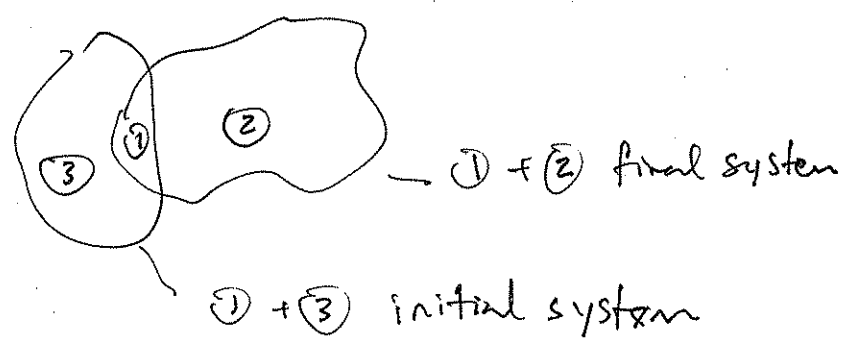 ③ ① ②
① + ② final system
① + ③ initial system